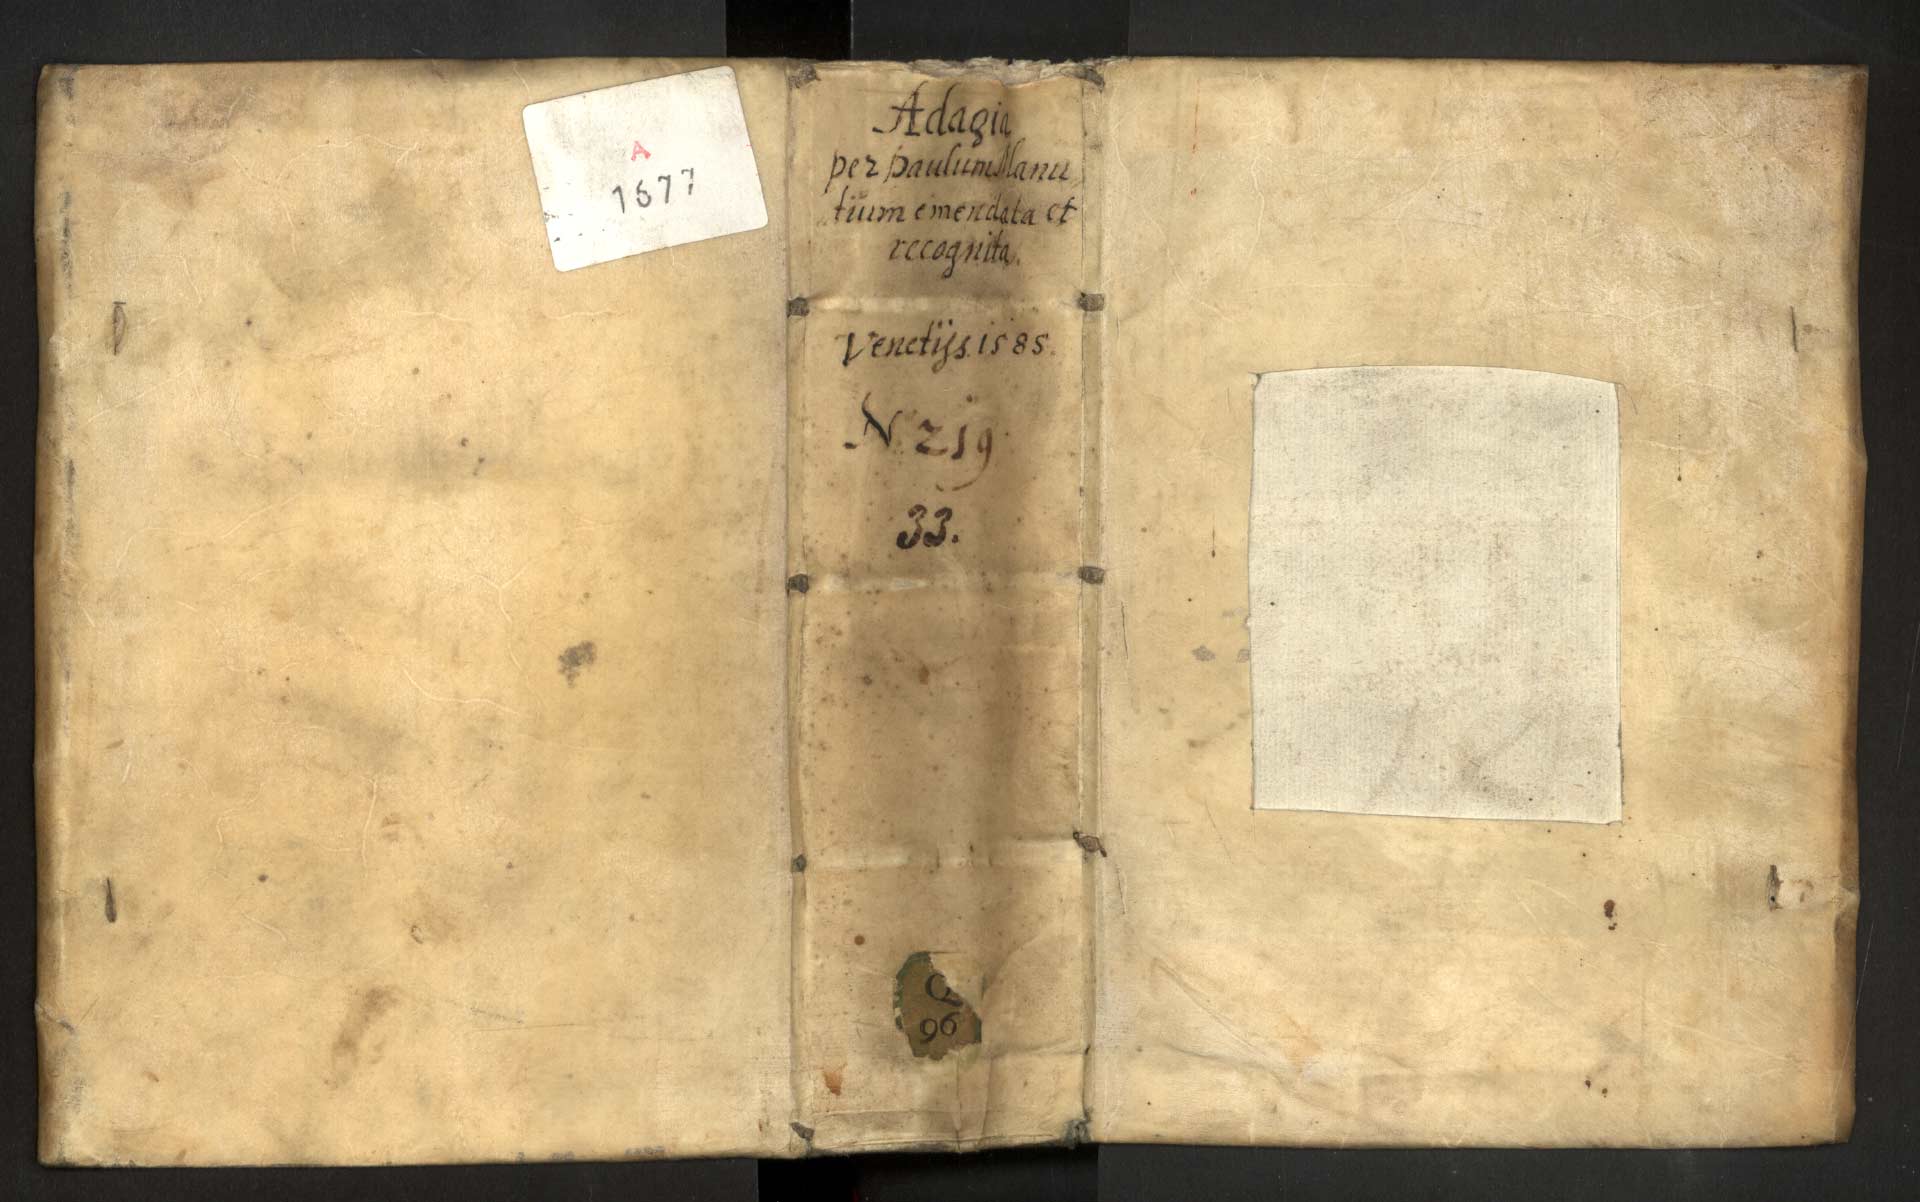 A
1677
Adagia
per paulum Manu
tium emendata et
recognita.
Venetijs. 1585.
N. 219
33.
Q
96